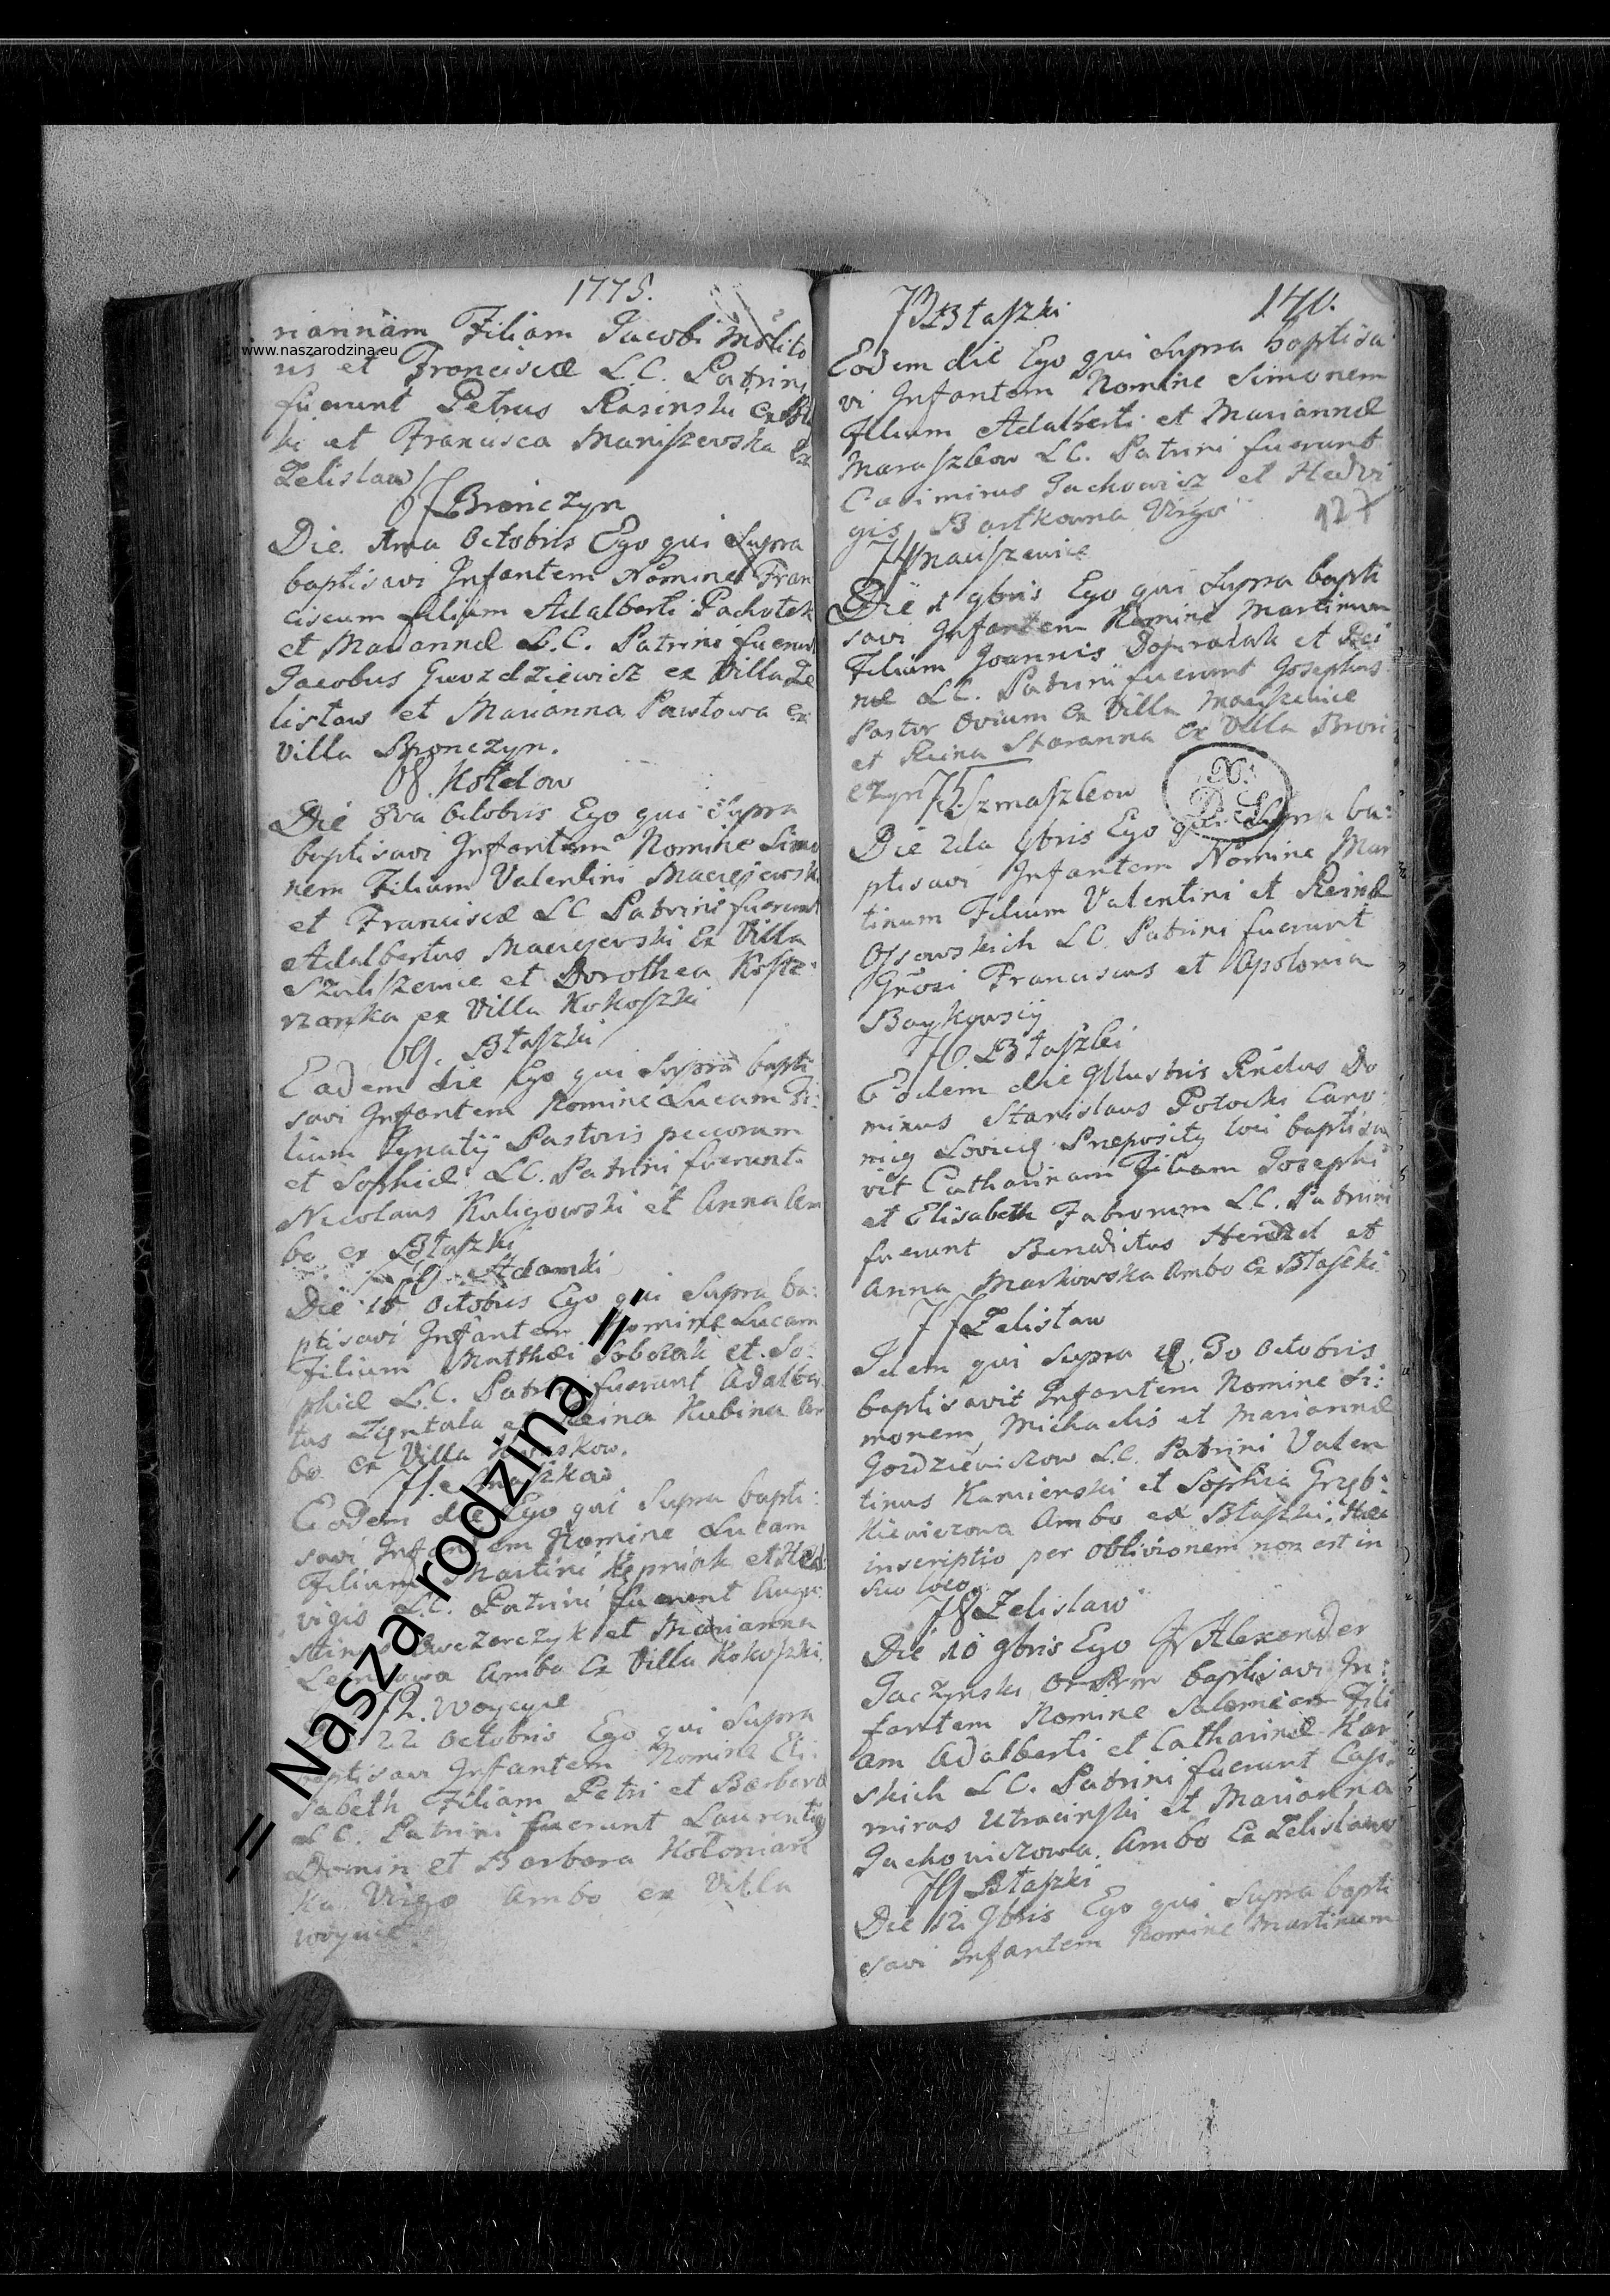 1775.
riannam Filiam Jacobi Molito
www.naszarodzina.eu
ris et Franciscæ L.C. Patrini
fuerunt Petrus Rosinski ex
ki et Francisca Maniszewska Ex
Zelislaw
67 Brończyn
Die 7ma Octobris Ego qui Supra
baptisavi Infantem Nomine Fran
ciscum filium Adalberti Pachotek
et Mariannæ L.C. Patrini fuerunt
Jacobus Gwozdziewicz ex Villa Ze
lisław et Marianna Pawłowa ex
Villa Bronczyn.
68. Kołdow
Die 8va Octobris Ego qui Supra
baptisavi Infantem Nomine Simo
nem Filium Valentini Maciejewski
et Franciscæ LC Patrini fuerunt
Adalbertus Maciejewski Ex Villa
et Dorothea
ex Villa Kokoszki
69. Błaszki
Eadem die Ego qui Supra bapti
savi Infantem Nomine Lucam Fi:
lium Ignatij Pastoris pecorum
et Sophiæ LC. Patrini fuerunt
Nicolaus Kuligowski et Anna Am
bo ex Błaszki
70. Adamki
Die 15 Octobris Ego qui Supra ba:
ptisavi Infantem Nomine Lucam
Filium Matthæi Sobczak et So:
phiæ L.C. Patrini fuerunt Adalber
tus Zyntala et Reina Kubina Am
bo Ex Villa
71.
Eodem die Ego qui Supra bapti:
savi Infantem Nomine Lucam
Filium Martini et Hed:
vigis L.C. Patrini fuerunt Augu:
stinus Owczarczyk et Marianna
Ambo Ex Villa Kokoszki.
72. Woycyce
22 Octobris Ego qui Supra
baptisavi Infantem Nomine Eli:
sabeth Filiam Petri et Barbaræ
L C. Patrini fuerunt Laurentig
Domin et Barbara Kołonian
ka Virgo Ambo ex Villa
= Nasza rodzina =
73 Błaszki
140.
Eodem die Ego qui Supra baptisa
vi Infantem Nomine Simonem
Filium Adalberti et Mariannæ
Maraszkow LC. Patrini fuerunt
Casimirus Jachowicz et Hedvi
gis Bartkowna Virgo
127
74
Die 1 9bris Ego qui Supra bapti
savi Infantem Nomine Martinum
Filium Joannis et Rei
næ LC. Patrini fuerunt Josephus
Pastor Ovium Ex Villa
et Reina Ex Villa Broń
czyn 75.
Die 2da 9bris Ego qui Supra ba:
ptisavi Infantem Nomine Mar
tinum Filium Valentini et Reinæ
Ossowskich LC. Patrini fuerunt
Grosi Franciscus et Apolonia
Baykowscÿ
76 Błaszki
Eodem die Illustris Rndus Do
minus Stanislaus Potocki Cano
nicg Prepositg loci baptisa
vit Catharinam Filiam Josephi
et Elisabeth Fabrorum LC. Patrini
fuerunt Benedictus et
Anna Markowska Ambo Ex Błaszki
77 Zelisław
Idem qui Supra 30 Octobris
baptisavit Infantem Nomine Si:
monem, Michaelis et Mariannæ
L.C. Patrini Valen
tinus Kamienski et Sophia Grzyb:
Ambo ex Błaszki. Hæc
inscriptio per oblivionem non est in
suo loco.
78 Zelislaw
Die 10 9bris Ego Fr Alexander
baptisavi In:
fantem Nomine Salomeam Fili
am Adalberti et Catharinæ Kar
skich LC. Patrini fuerunt Casi:
mirus Utracinski et Marianna
Jachowiczowa. Ambo Ex Zelislaw
79 Błaszki
Die 12 9bris Ego qui Supra bapti
savi Infantem Nomine Martinum